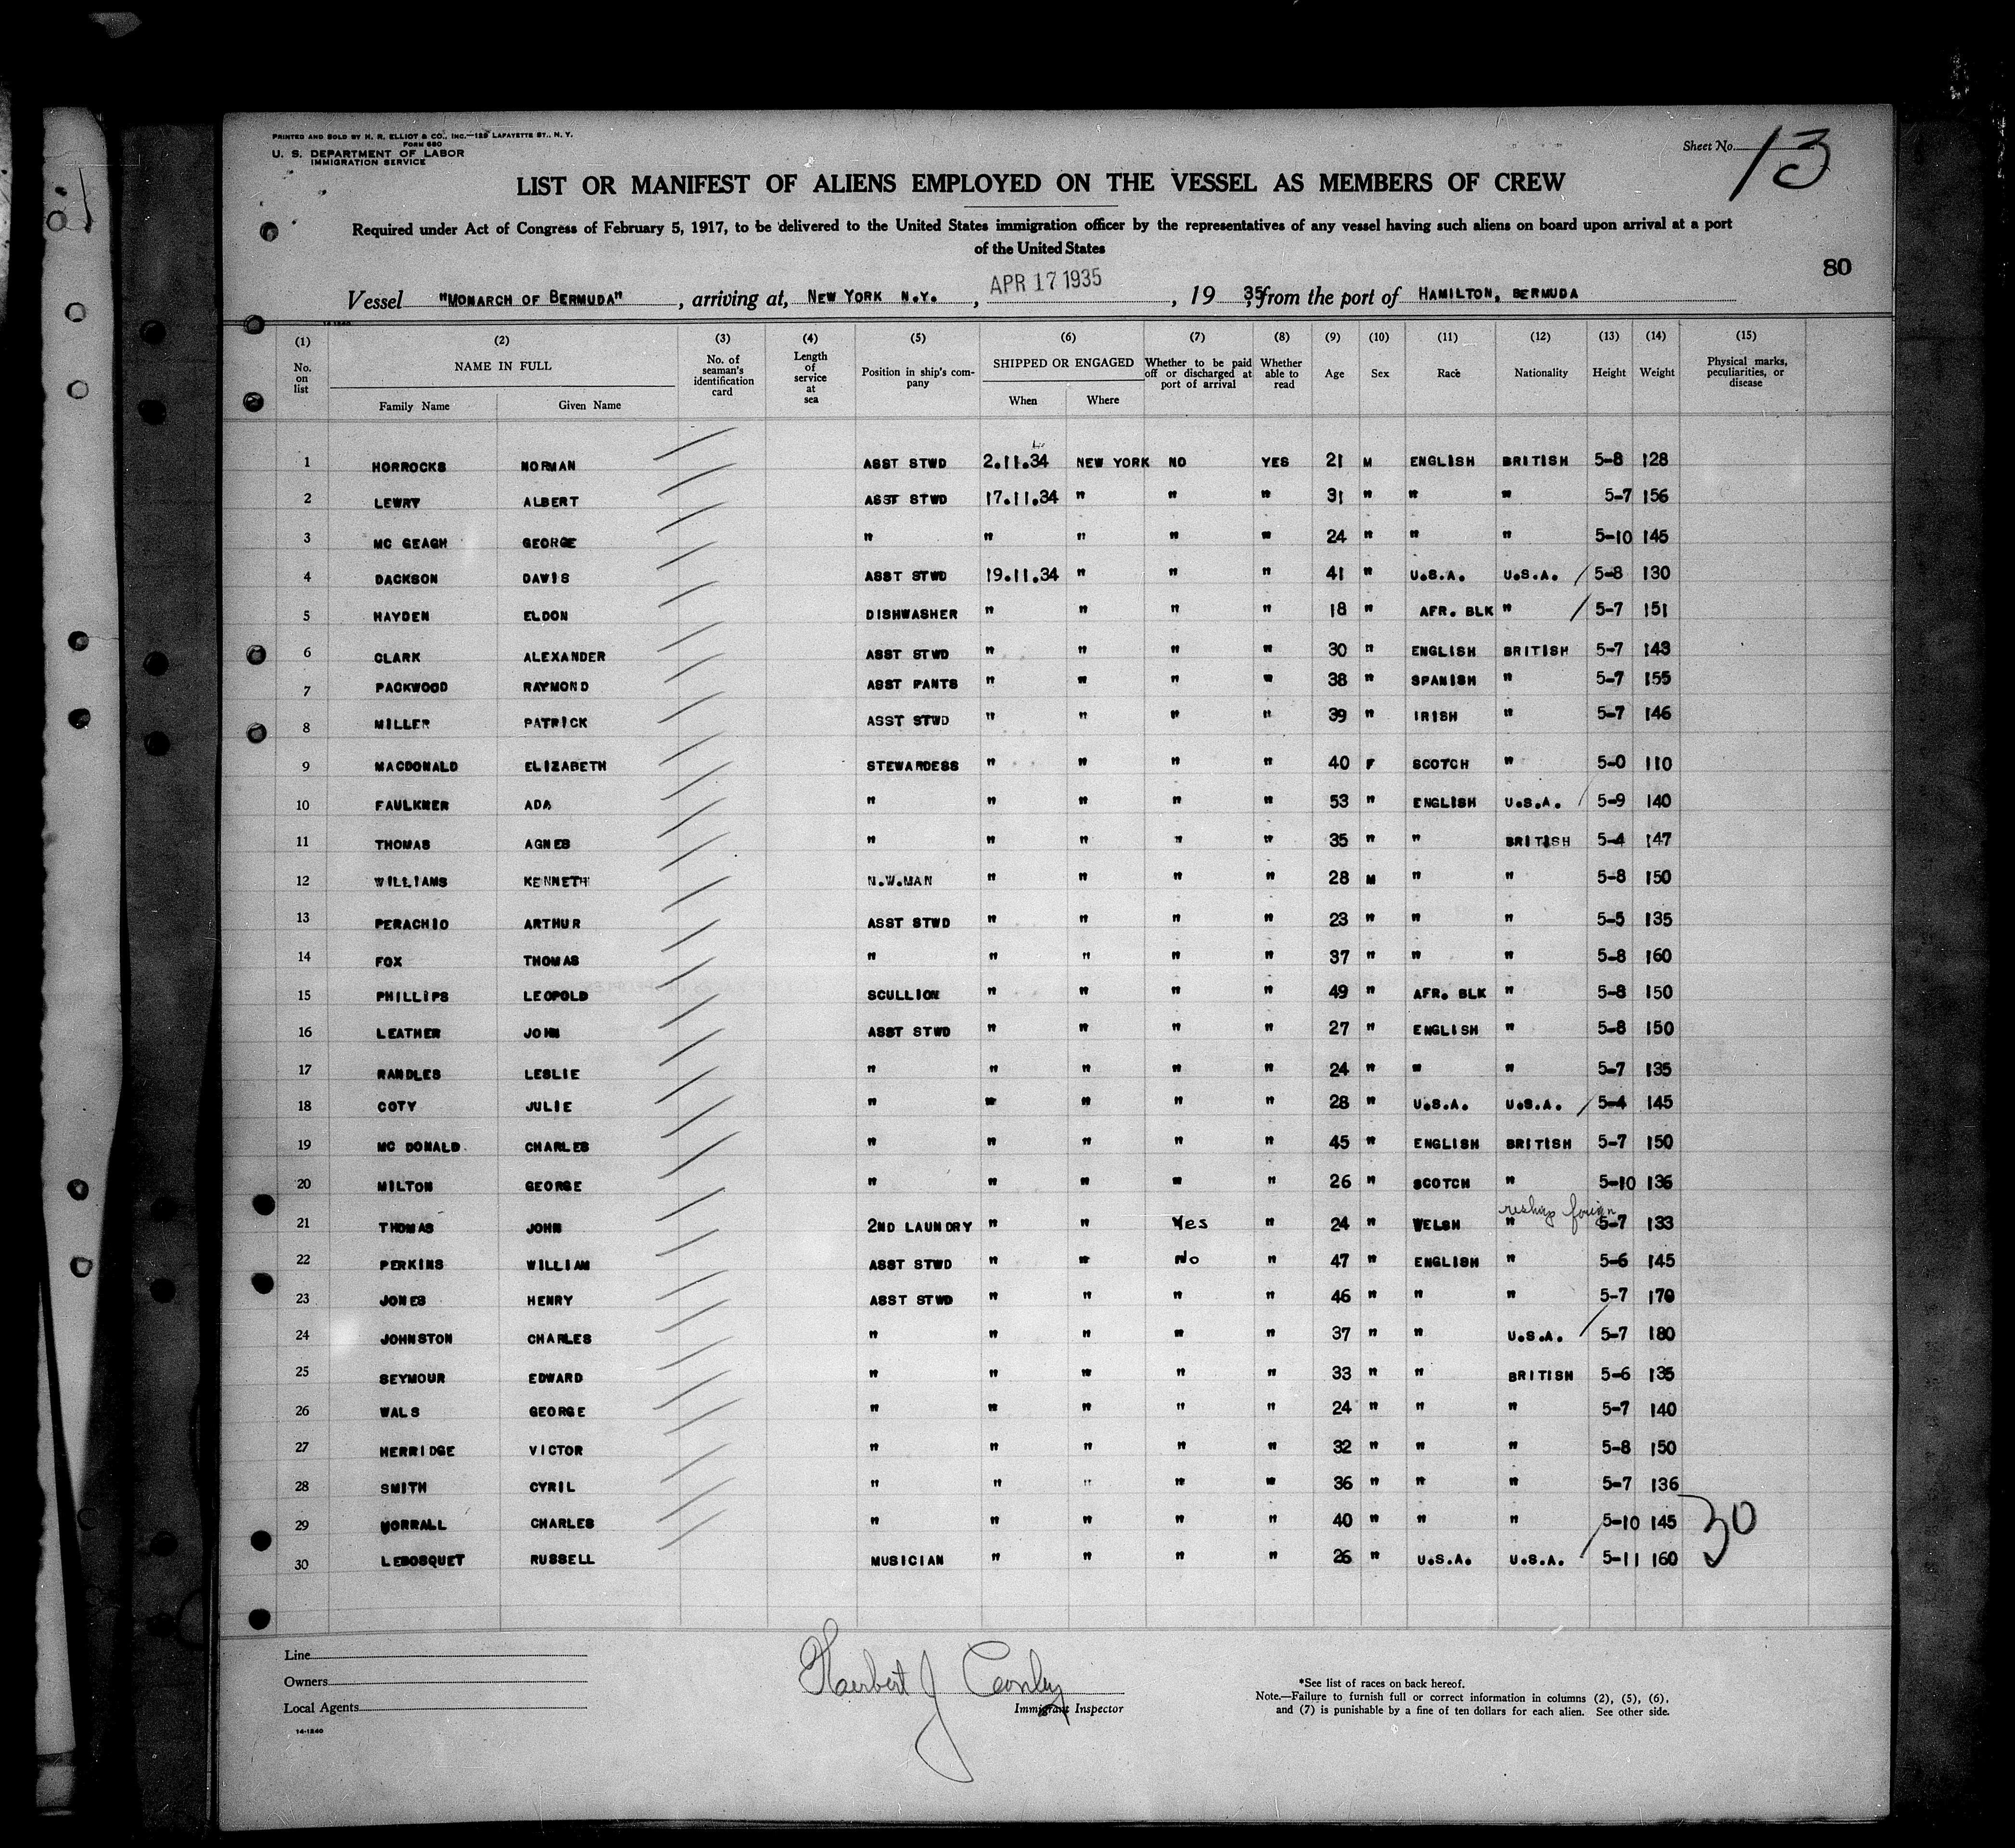 PRINTED AND SOLD BY H. R. ELLIOT & CO., INC.—129 LAFAYETTE ST., N. Y.
FORM 680
U. S. DEPARTMENT OF LABOR
IMMIGRATION SERVICE
Sheet No. 13
LIST OR MANIFEST OF ALIENS EMPLOYED ON THE VESSEL AS MEMBERS OF CREW
Required under Act of Congress of February 5, 1917, to be delivered to the United States immigration officer by the representatives of any vessel having such aliens on board upon arrival at a port
of the United States
80
Vessel "MONARCH OF BERMUDA", arriving at, NEW YORK N.Y., APR 17 1935, 19 35, from the port of HAMILTON, BERMUDA
14-1240
(1) (2) (3) (4) (5) (6) (7) (8) (9) (10) (11) (12) (13) (14) (15)
No. on list NAME IN FULL Family Name Given Name No. of seaman's identification card Length of service at sea Position in ship's company SHIPPED OR ENGAGED When Where Whether to be paid off or discharged at port of arrival Whether able to read Age Sex Race Nationality Height Weight Physical marks, peculiarities, or disease
1 HORROCKS NORMAN ASST STWD 2.11.34 NEW YORK NO YES 21 M ENGLISH BRITISH 5-8 128
2 LEWRY ALBERT ASST STWD 17.11.34 " " " 31 " " " 5-7 156
3 MC GEAGH GEORGE " " " " " 24 " " " 5-10 145
4 DACKSON DAVIS ASST STWD 19.11.34 " " " 41 " U.S.A. U.S.A. 5-8 130
5 HAYDEN ELDON DISHWASHER " " " " 18 " AFR. BLK " 5-7 151
6 CLARK ALEXANDER ASST STWD " " " " 30 " ENGLISH BRITISH 5-7 143
7 PACKWOOD RAYMOND ASST PANTS " " " " 38 " SPANISH " 5-7 155
8 MILLER PATRICK ASST STWD " " " " 39 " IRISH " 5-7 146
9 MACDONALD ELIZABETH STEWARDESS " " " " 40 F SCOTCH " 5-0 110
10 FAULKNER ADA " " " " " 53 " ENGLISH U.S.A. 5-9 140
11 THOMAS AGNES " " " " " 35 " " BRITISH 5-4 147
12 WILLIAMS KENNETH N.W.MAN " " " " 28 M " " 5-8 150
13 PERACHIO ARTHUR ASST STWD " " " " 23 " " " 5-5 135
14 FOX THOMAS " " " " " 37 " " " 5-8 160
15 PHILLIPS LEOPOLD SCULLION " " " " 49 " AFR. BLK " 5-8 150
16 LEATHER JOHN ASST STWD " " " " 27 " ENGLISH " 5-8 150
17 RANDLES LESLIE " " " " " 24 " " " 5-7 135
18 COTY JULIE " " " " " 28 " U.S.A. U.S.A. 5-4 145
19 MC DONALD CHARLES " " " " " 45 " ENGLISH BRITISH 5-7 150
20 MILTON GEORGE " " " " " 26 " SCOTCH " 5-10 136
reship foreign
21 THOMAS JOHN 2ND LAUNDRY " " Yes " 24 " WELSH " 5-7 133
22 PERKINS WILLIAM ASST STWD " " No " 47 " ENGLISH " 5-6 145
23 JONES HENRY ASST STWD " " " " 46 " " " 5-7 170
24 JOHNSTON CHARLES " " " " " 37 " " U.S.A. 5-7 180
25 SEYMOUR EDWARD " " " " " 33 " " BRITISH 5-6 135
26 WALS GEORGE " " " " " 24 " " " 5-7 140
27 HERRIDGE VICTOR " " " " " 32 " " " 5-8 150
28 SMITH CYRIL " " " " " 36 " " " 5-7 136
29 WORRALL CHARLES " " " " " 40 " " " 5-10 145
30
30 LEBOSQUET RUSSELL MUSICIAN " " " " 26 " U.S.A. U.S.A. 5-11 160
Line
Owners
Local Agents
14-1240
Herbert J Conley
Immigrant Inspector
*See list of races on back hereof.
Note.—Failure to furnish full or correct information in columns (2), (5), (6),
and (7) is punishable by a fine of ten dollars for each alien. See other side.